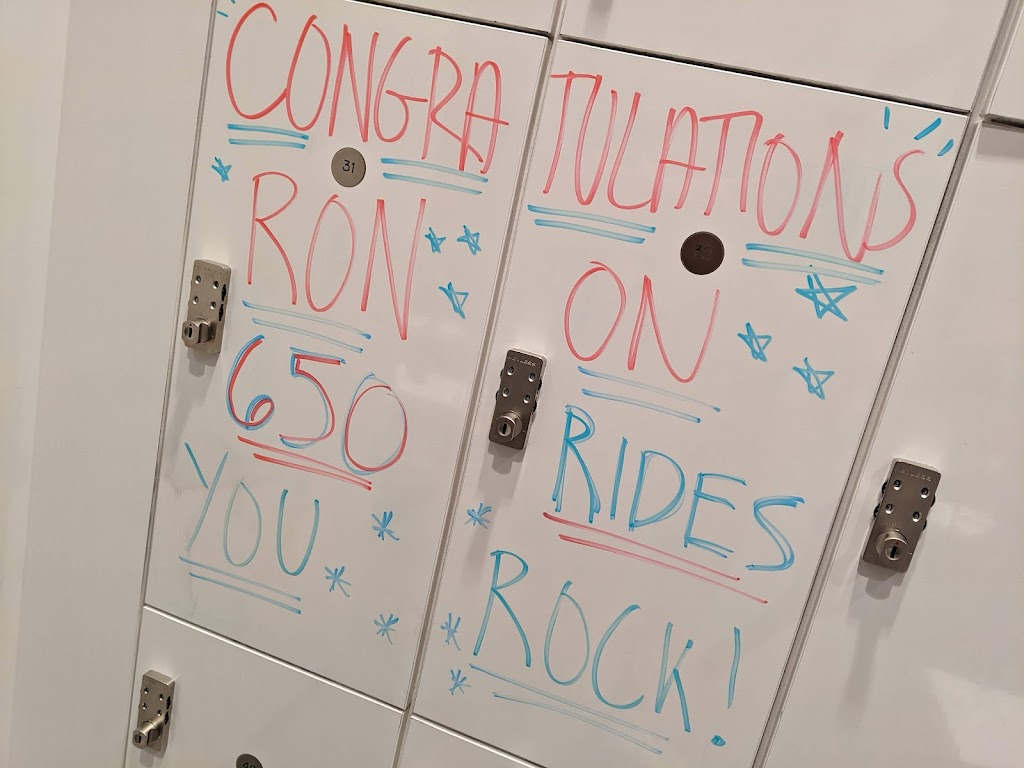 CONGRATULATIONS
31
RON ON
650 RIDES
YOU ROCK!